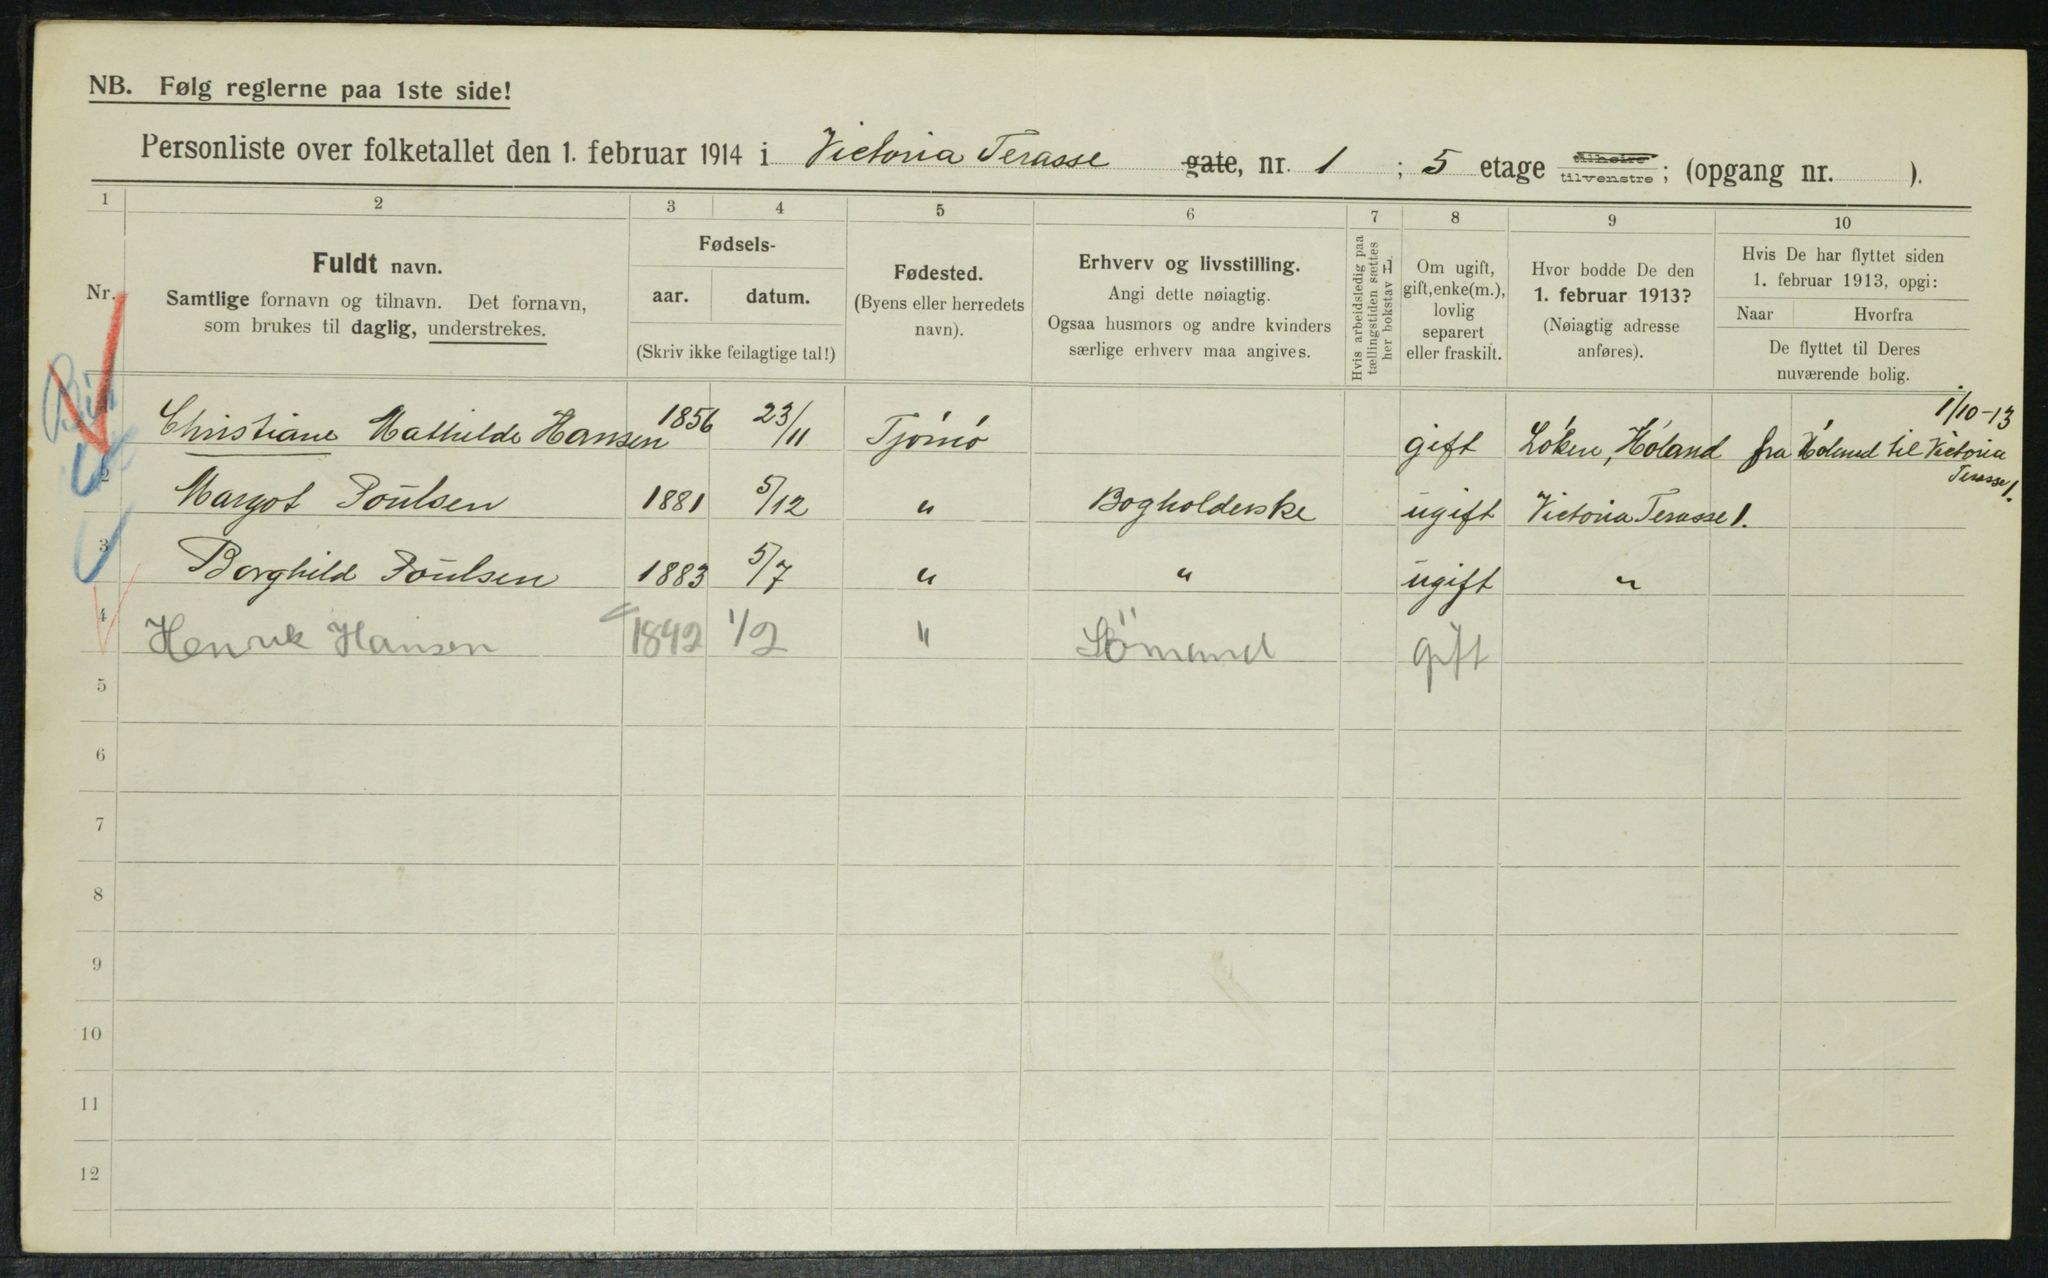 NB. Følg reglerne paa 1ste side!
Personliste over folketallet den 1. februar 1914 i Victoria Terasse gate, nr. 1 ; 5 etage tilhøire tilvenstre ; (opgang nr. ).
1 2 3 4 5 6 7 8 9 10
Nr.
Fuldt navn.
Samtlige fornavn og tilnavn. Det fornavn,
som brukes til daglig, understrekes.
Fødsels-
aar. datum.
(Skriv ikke feilagtige tal!)
Fødested.
(Byens eller herredets
navn).
Erhverv og livsstilling.
Angi dette nøiagtig.
Ogsaa husmors og andre kvinders
særlige erhverv maa angives.
Hvis arbeidsledig paa
tællingstiden sættes
her bokstav L
Om ugift,
gift, enke(m.),
lovlig
separert
eller fraskilt.
Hvor bodde De den
1. februar 1913?
(Nøiagtig adresse
anføres).
Hvis De har flyttet siden
1. februar 1913, opgi:
Naar Hvorfra
De flyttet til Deres
nuværende bolig.
Christiane Mathilde Hansen 1856 23/11 Tjömö gift Löken, Höland fra Höland til Victoria Terasse 1. 1/10-13
2 Margot Poulsen 1881 5/12 " Bogholderske ugift Victoria Terasse 1.
3 Borghild Poulsen 1883 5/7 " " ugift "
4 Henrik Hansen 1842 1/2 " Sömand gift
5
6
7
8
9
10
11
12